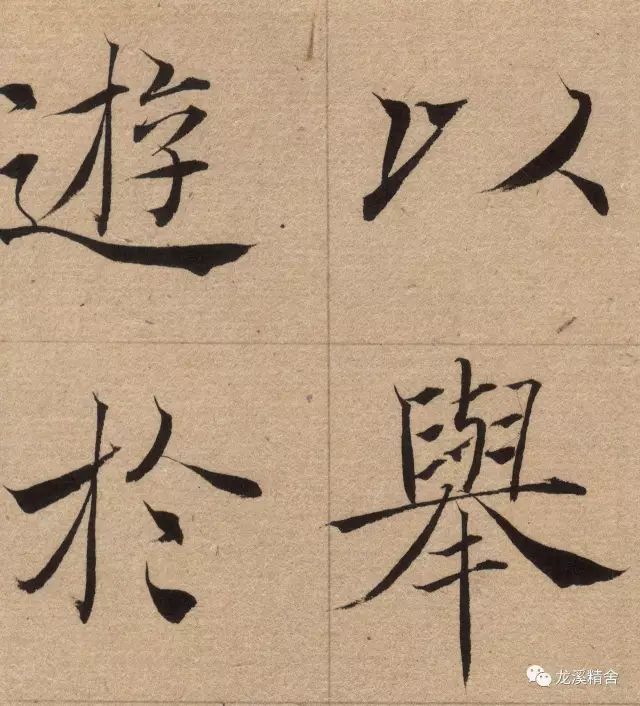 以舉
遊於
龙溪精舍